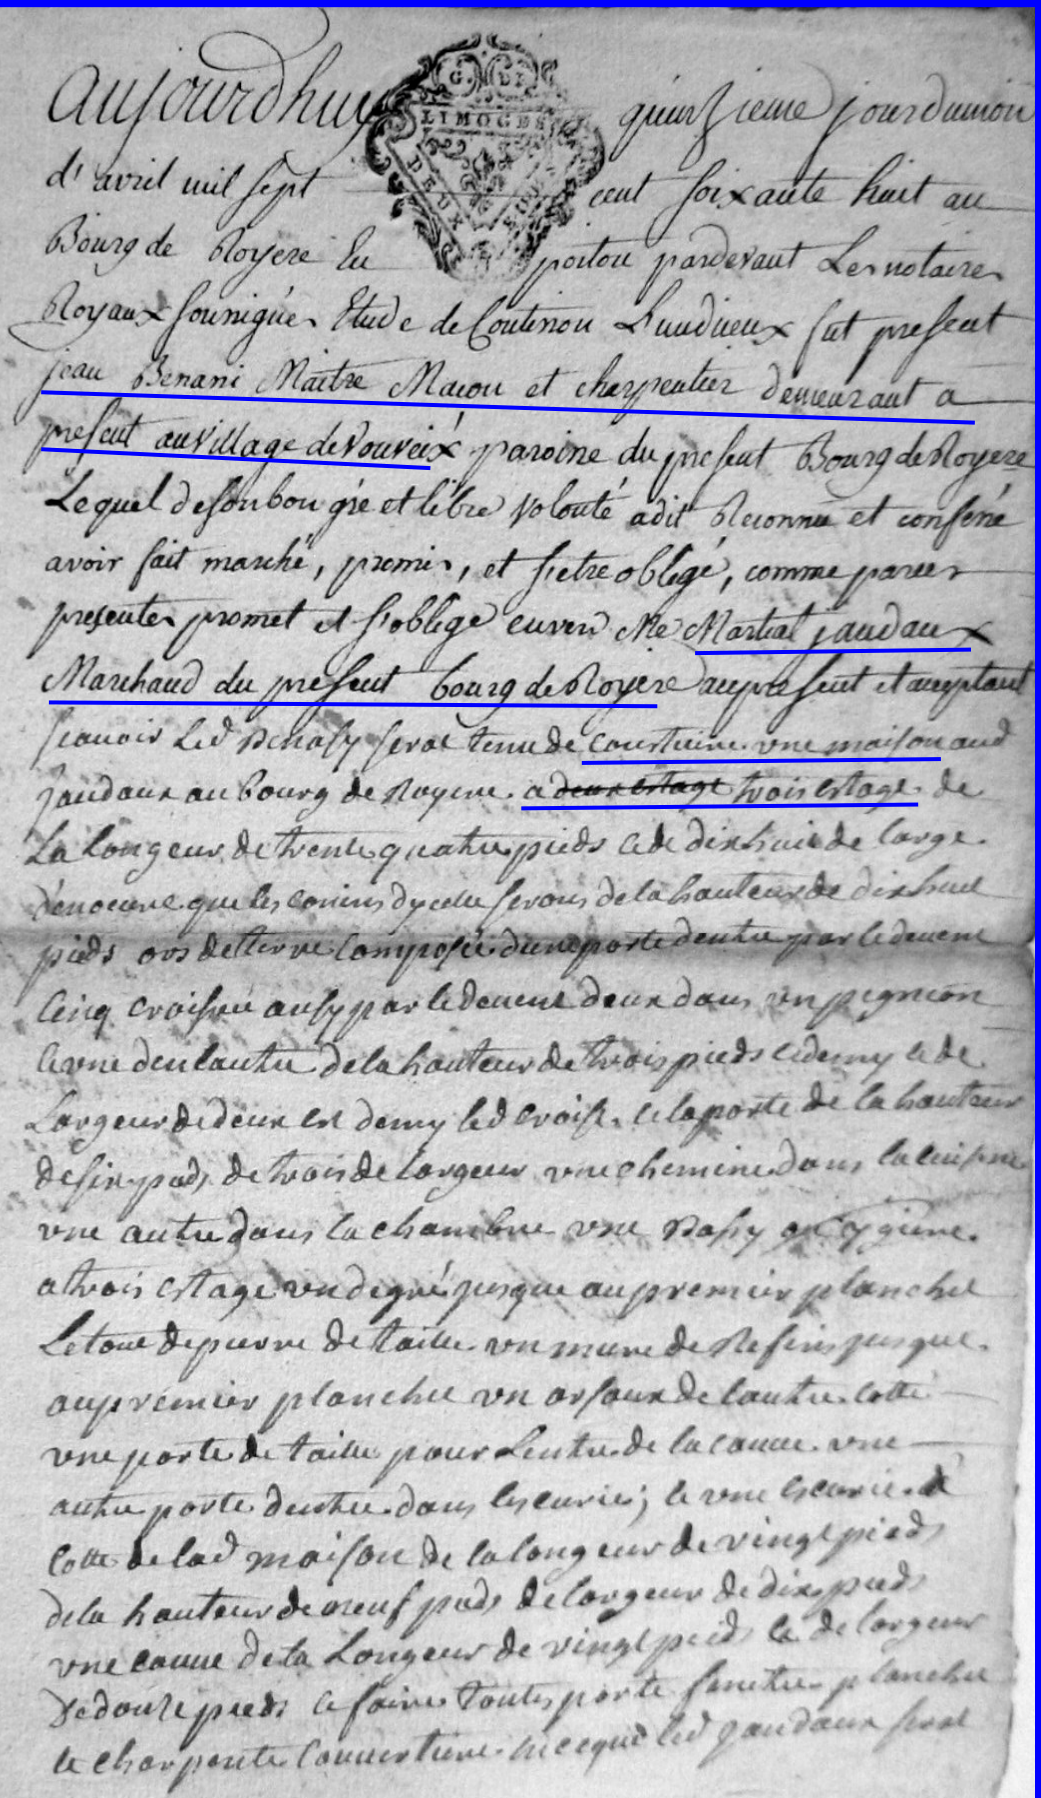 Aujourdhuy quinzieme jour du mois
G. DE
LIMOGES
DEUX SOLS
d'avril mil sept cent soixante huit au
Bourg de Royere En poitou pardevant Les notaires
Royaux soussignés fut present
jean Benani Maitre Macon et charpentier demeurant a
present au village de Vouveix paroisse du present Bourg de Royere
Lequel de son bon gré et libre volonté a dit Reconnu et confessé
avoir fait marché, promis, et s'etre obligé, comme par ces
presentes promet et s'oblige envers Me Martial jandaux
Marchand du present bourg de Royere au present et acceptant
scavoir Led Benassy serat tenu de constuire vne maison aud
Jandaux au bourg de Royere a deux estage trois estage de
La Longeur de trente quatre pieds et de dix huit de large
que les de la hauteur de dix huit
pieds ors de terre Composée dune porte dentre par le devent
Cinq croisée ausy par le devent deux dans vn pignion
et vne den lautre de la hauteur de trois pieds et demy et de
Largeur de deux et demy led crois. et la porte de la hauteur
de six pieds de trois de largeur vne chemine dans la cuisine
vne autre dans la chambre vne
a trois estage vn degré jusque au premier planché
Le tout de pierre de taille vn mure de Refins jusque
au premier planche vn de lautre cotté
vne porte de taille pour Lentre de la cauue vne
autre porte dentre dans lescurie; et vne escurie a
Cotte de lad maison de la longeur de vingt pieds
de la hauteur de neuf pieds de largeur de dix pieds
vne cauue de la Longeur de vingt pieds et de largeur
de douze pieds et faire toutes porte fenetre planche
et charpente Couuerture led Jandaux serat